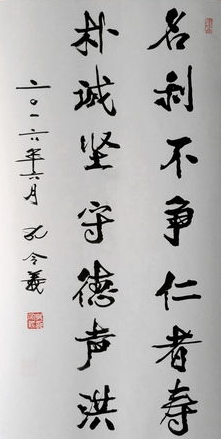 名利不争仁者寿
朴诚坚守德声洪
二〇一六年六月 孔令义